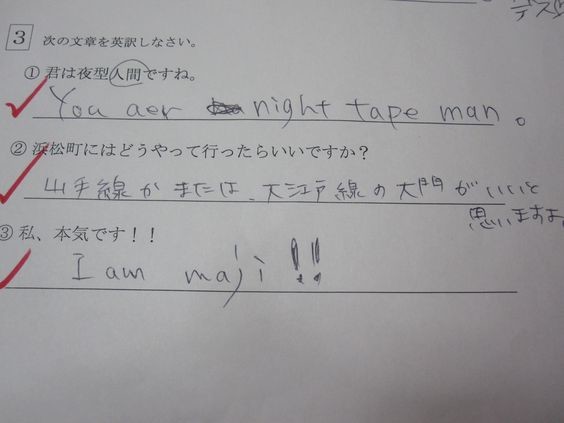 デス
3 次の文章を英訳しなさい。
① 君は夜型人間ですね。
You aer night tape man。
② 浜松町にはどうやって行ったらいいですか？
山手線かまたは、大江戸線の大門がいいと
思いますよ。
③ 私、本気です！！
I am maji !!